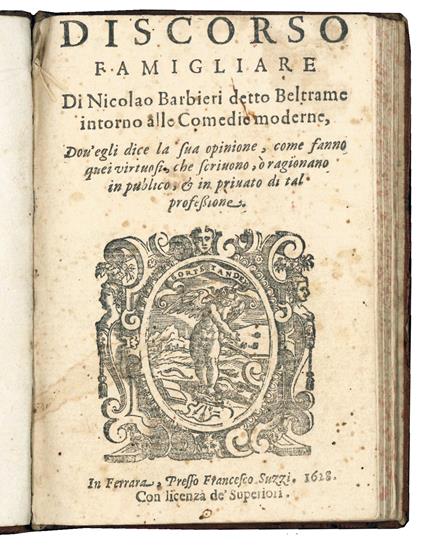 DISCORSO
FAMIGLIARE
Di Nicolao Barbieri detto Beltrame
intorno alle Comedie moderne,
Dou'egli dice la sua opinione, come fanno
quei virtuosi, che scriuono, ò ragionano
in publico, & in priuato di tal
professione.
FORTE TANDE
In Ferrara, Presso Francesco Suzzi. 1628.
Con licenza de' Superiori.